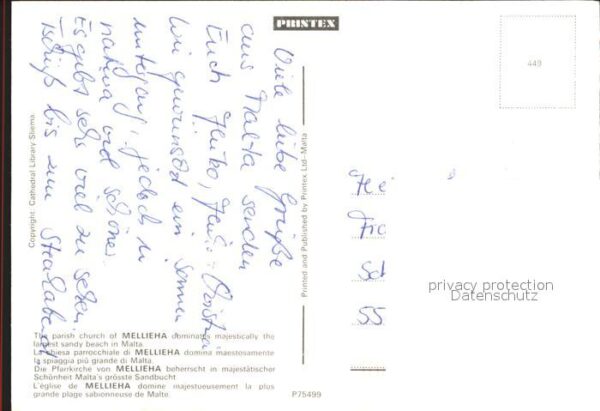 PRINTEX
449
Viele liebe Grüße
aus Malta senden
Euch Heiko,
Wir
ein
jedoch in
natura viel schöner.
Es gibt sehr viel zu sehen.
Tschüß bis zum
Hei
Fra
Sch
55
privacy protection
Datenschutz
Copyright: Cathedral Library/Sliema.
Printed and Published by Printex Ltd–Malta
The parish church of MELLIEHA dominates majestically the
largest sandy beach in Malta.
La chiesa parrocchiale di MELLIEHA domina maestosamente
la spiaggia più grande di Malta.
Die Pfarrkirche von MELLIEHA beherrscht in majestätischer
Schönheit Malta's grösste Sandbucht.
L'église de MELLIEHA domine majestueusement la plus
grande plage sabionneuse de Malte.
P75499